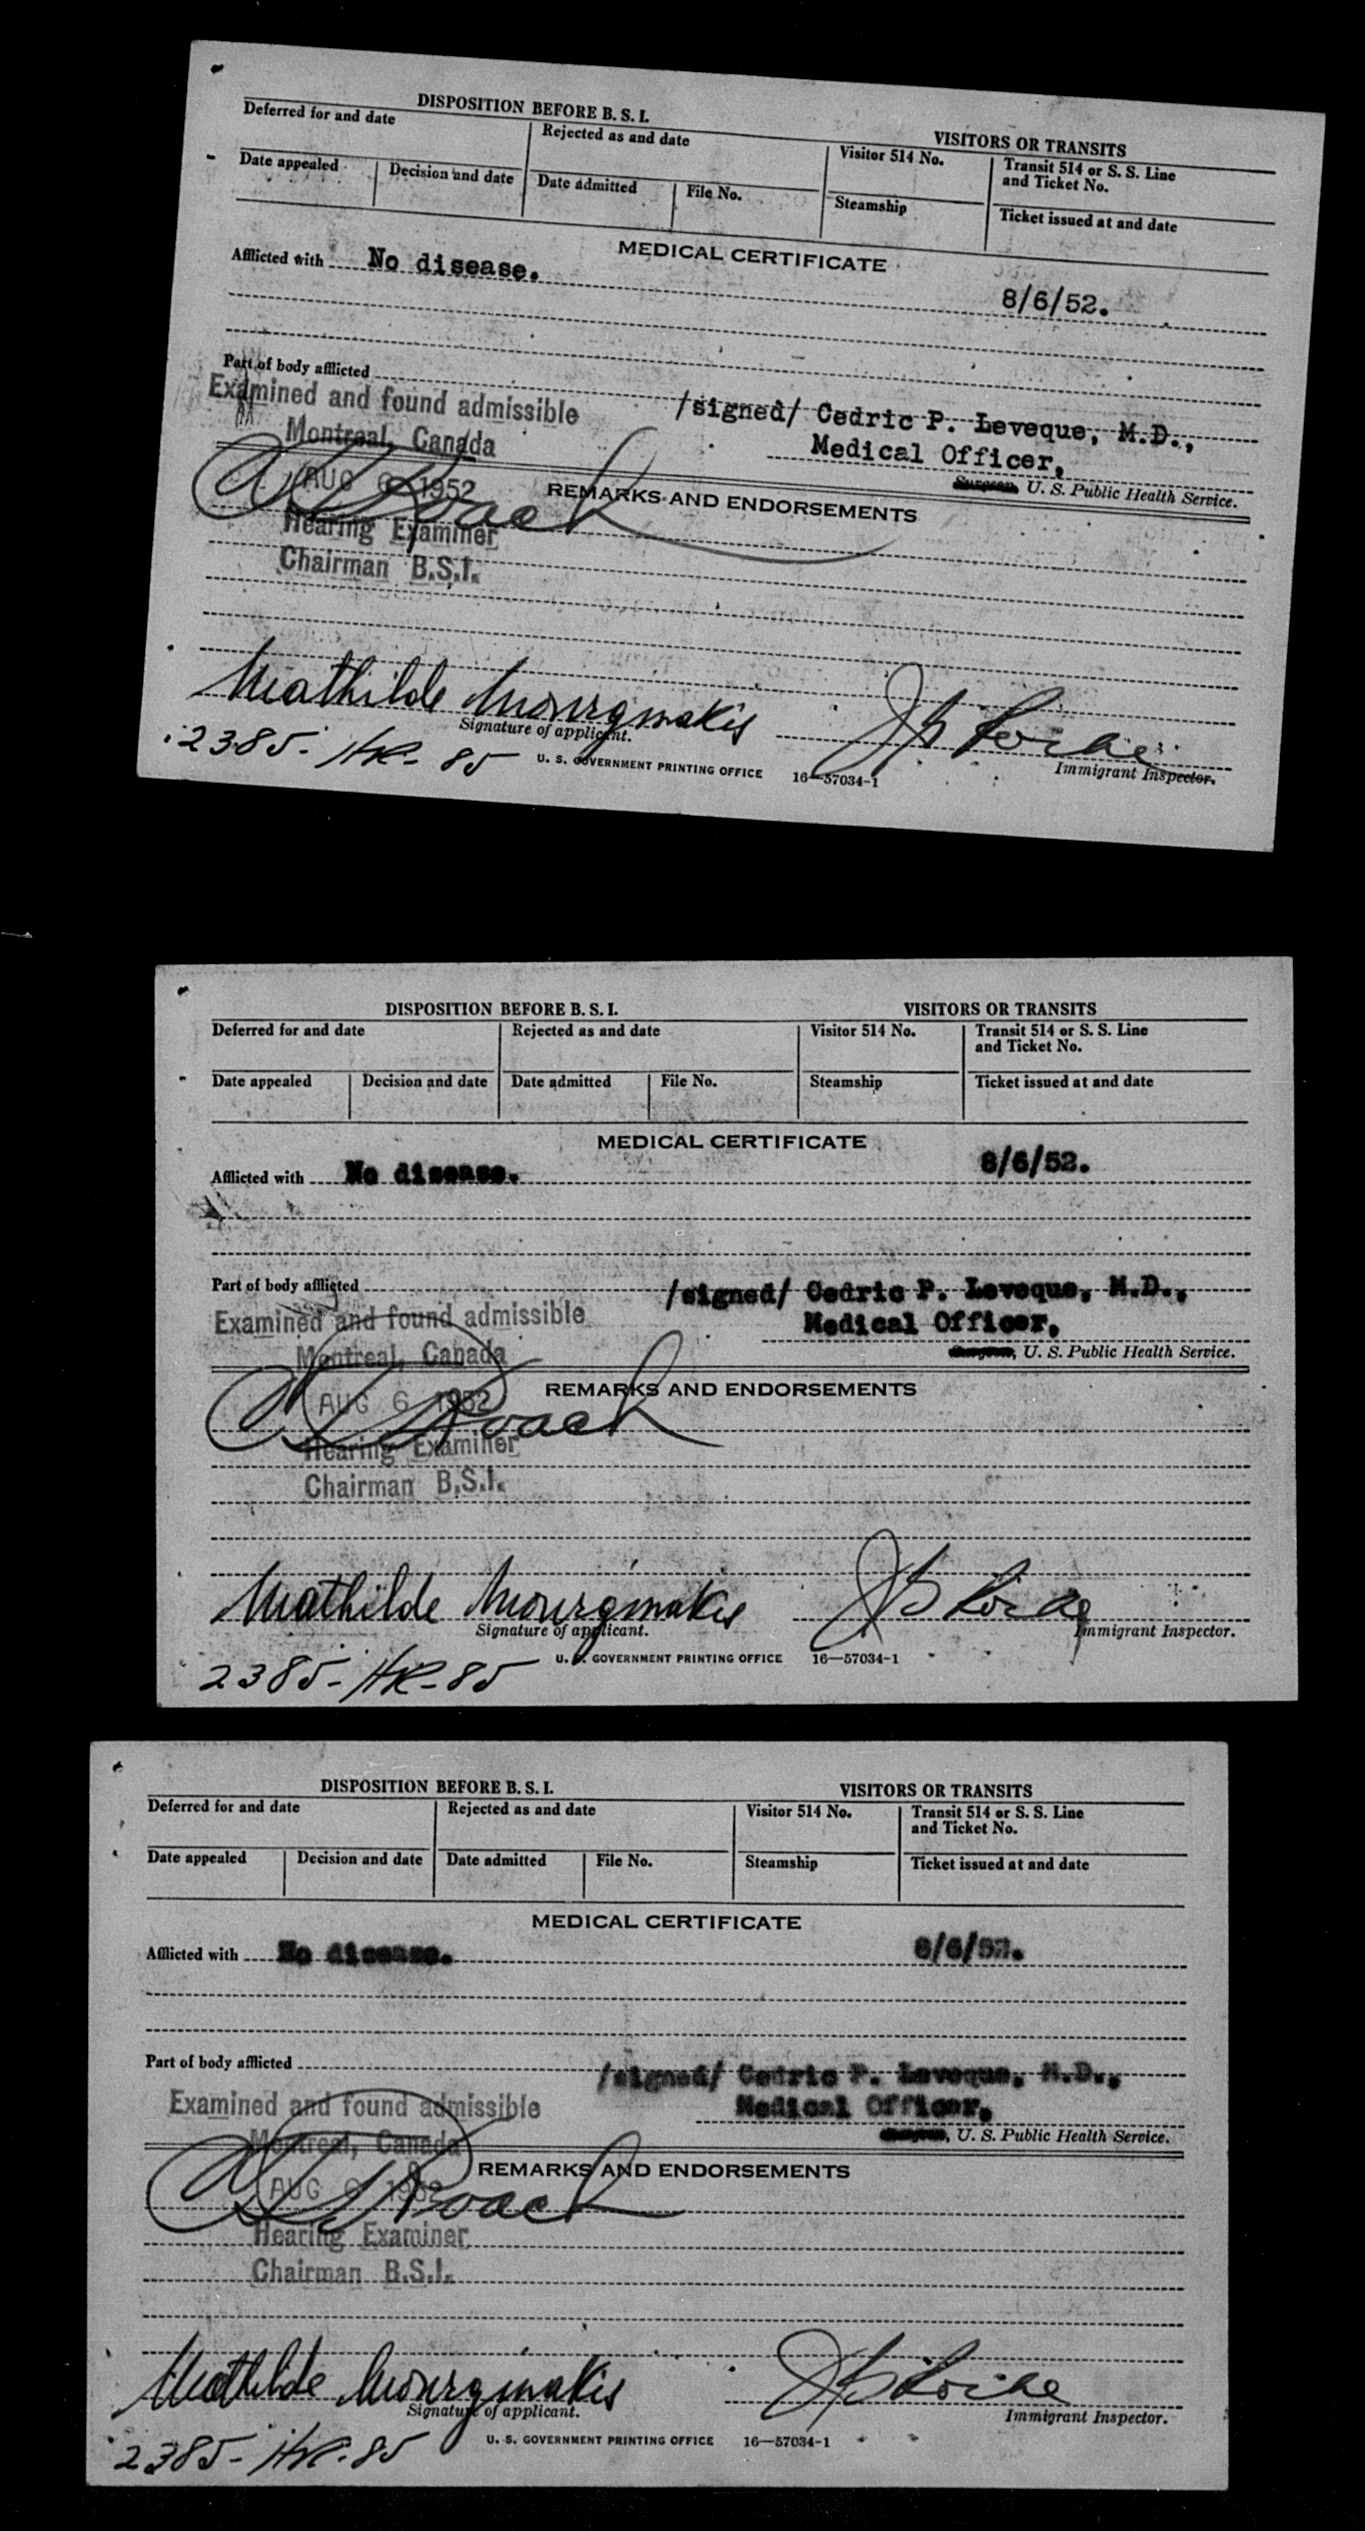 DISPOSITION BEFORE B. S. I.
VISITORS OR TRANSITS
Deferred for and date
Rejected as and date
Visitor 514 No.
Transit 514 or S. S. Line
and Ticket No.
Date appealed
Decision and date
Date admitted
File No.
Steamship
Ticket issued at and date
MEDICAL CERTIFICATE
Afflicted with No disease.
8/6/52.
Part of body afflicted
Examined and found admissible
/signed/ Cedric P. Leveque, M.D.,
Montreal, Canada
Medical Officer,
U. S. Public Health Service.
AUG 6 1952
Roach
REMARKS AND ENDORSEMENTS
Hearing Examiner
Chairman B.S.I.
Mathilde
Signature of applicant.
Immigrant Inspector.
2385-HR-85
U. S. GOVERNMENT PRINTING OFFICE 16—57034-1
DISPOSITION BEFORE B. S. I.
VISITORS OR TRANSITS
Deferred for and date
Rejected as and date
Visitor 514 No.
Transit 514 or S. S. Line
and Ticket No.
Date appealed
Decision and date
Date admitted
File No.
Steamship
Ticket issued at and date
MEDICAL CERTIFICATE
8/6/52.
Afflicted with No disease.
Part of body afflicted
/signed/ Cedric P. Leveque, M.D.,
Examined and found admissible
Medical Officer,
Montreal, Canada
U. S. Public Health Service.
REMARKS AND ENDORSEMENTS
AUG 6 1952
Roach
Hearing Examiner
Chairman B.S.I.
Mathilde
Signature of applicant.
Immigrant Inspector.
U. S. GOVERNMENT PRINTING OFFICE 16—57034-1
2385-HR-85
DISPOSITION BEFORE B. S. I.
VISITORS OR TRANSITS
Deferred for and date
Rejected as and date
Visitor 514 No.
Transit 514 or S. S. Line
and Ticket No.
Date appealed
Decision and date
Date admitted
File No.
Steamship
Ticket issued at and date
MEDICAL CERTIFICATE
Afflicted with No disease.
8/6/52.
Part of body afflicted
/signed/ Cedric P. Leveque, M.D.,
Examined and found admissible
Medical Officer,
U. S. Public Health Service.
Montreal, Canada
REMARKS AND ENDORSEMENTS
AUG 6 1952
Roach
Hearing Examiner
Chairman B.S.I.
Mathilde
Signature of applicant.
Immigrant Inspector.
U. S. GOVERNMENT PRINTING OFFICE 16—57034-1
2385-HR-85